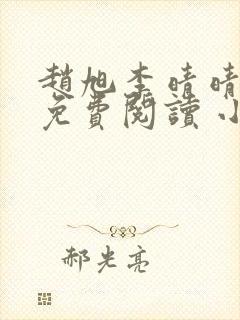 趙旭李晴晴
免費閱讀小
郝光亮